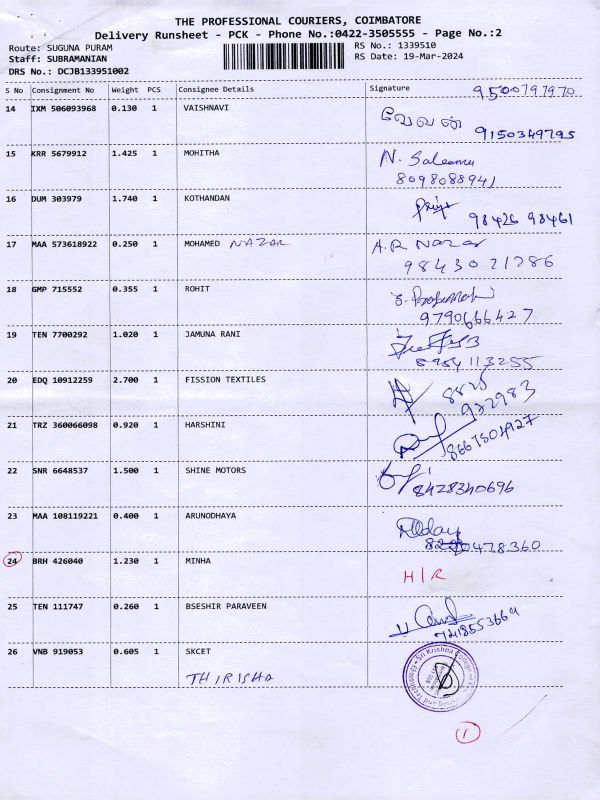 THE PROFESSIONAL COURIERS, COIMBATORE
Delivery Runsheet - PCK - Phone No.:0422-3505555 - Page No.:2
Route: SUGUNA PURAM RS No.: 1339510
Staff: SUBRAMANIAN RS Date: 19-Mar-2024
DRS No.: DCJB133951002
S No Consignment No Weight PCS Consignee Details Signature 9500797970
14 IXM 506093968 0.130 1 VAISHNAVI
9150349795
15 KRR 5679912 1.425 1 MOHITHA N. Saleema
8098088941
16 DUM 303979 1.740 1 KOTHANDAN
98426 98461
17 MAA 573618922 0.250 1 MOHAMED NAZAR A.R Nazar
9843021286
18 GMP 715552 0.355 1 ROHIT
9790666427
19 TEN 7700292 1.020 1 JAMUNA RANI
20 EDQ 10912259 2.700 1 FISSION TEXTILES
922983
21 TRZ 360066098 0.920 1 HARSHINI
22 SNR 6648537 1.500 1 SHINE MOTORS
8428340696
23 MAA 108119221 0.400 1 ARUNODHAYA
24 BRH 426040 1.230 1 MINHA H/R
25 TEN 111747 0.260 1 BSESHIR PARAVEEN
26 VNB 919053 0.605 1 SKCET
THIRISHA
1